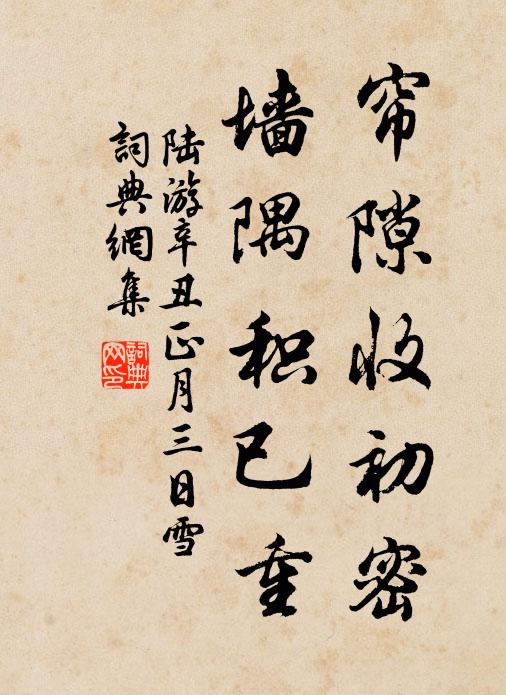 帘隙收初密
墙隅积已重
陆游辛丑正月三日雪
詞典網集
詞典
网印